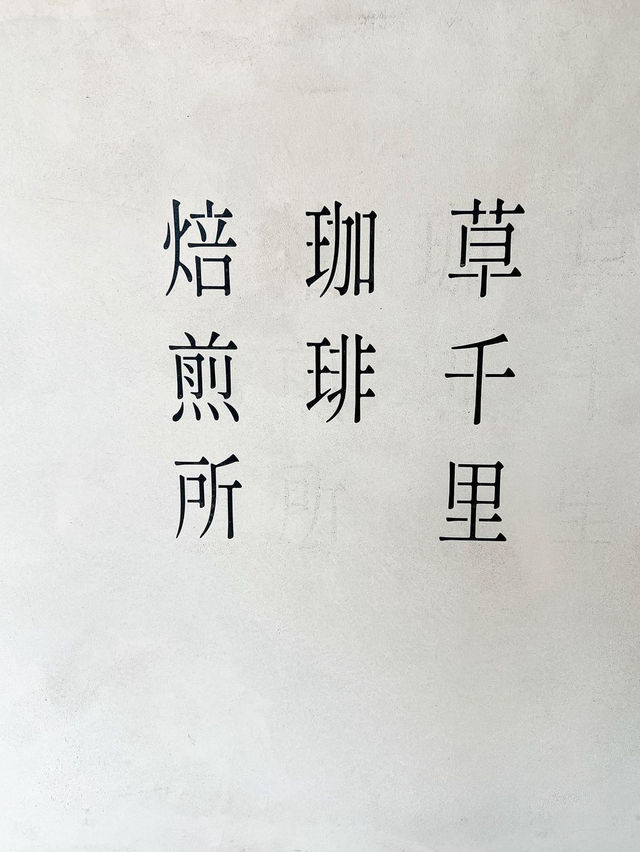 草千里
珈琲
焙煎所